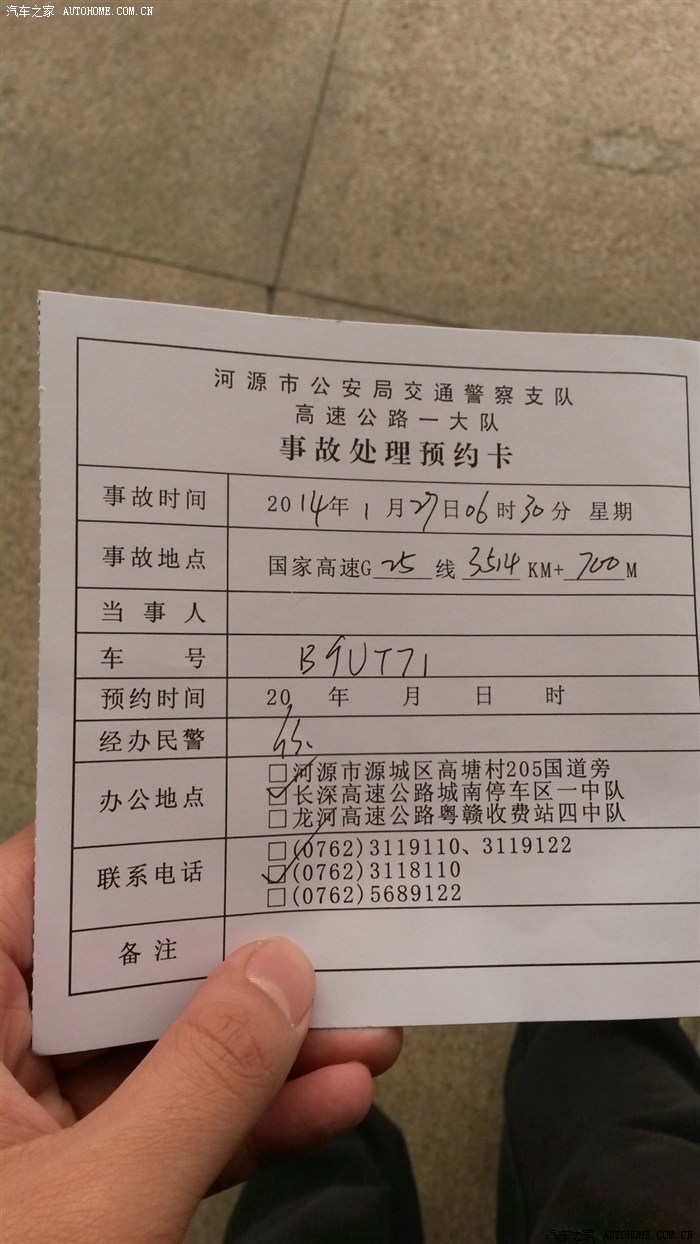 汽车之家 AUTOHOME.COM.CN
河源市公安局交通警察支队
高速公路一大队
事故处理预约卡
事故时间 2014年1月27日06时30分 星期
事故地点 国家高速G 25 线 3514 KM+ 700 M
当事人
车号 B9UT71
预约时间 20 年 月 日 时
经办民警
办公地点 □河源市源城区高塘村205国道旁
☑长深高速公路城南停车区一中队
□龙河高速公路粤赣收费站四中队
联系电话 □(0762)3119110、3119122
☑(0762)3118110
□(0762)5689122
备注
汽车之家 WWW.AUTOHOME.COM.CN